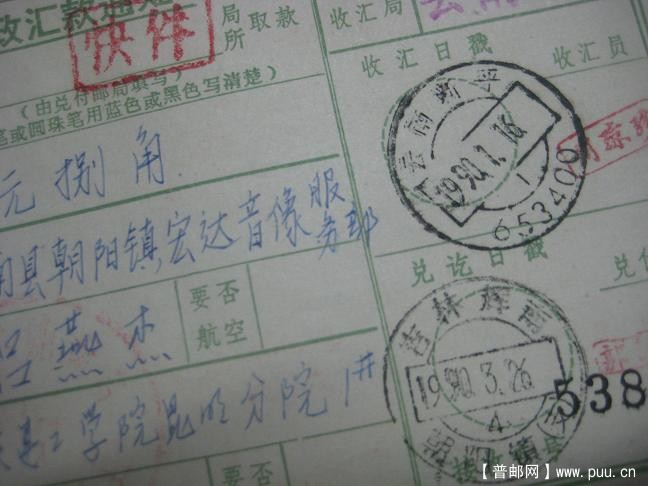 收汇款通知
快件
局
所
取款
收汇局
云南
(由兑付邮局填写)
笔或圆珠笔用蓝色或黑色写清楚
收汇日戳
收汇员
元捌角
云南昌平
1990.1.16
1
653400
南县朝阳镇宏达音像服
务部
要否
航空
吕燕杰
工学院昆明分院
兑讫日戳
兑付
吉林辉南
1990.3.26
4
朝阳镇
538
【普邮网】www.puu.cn